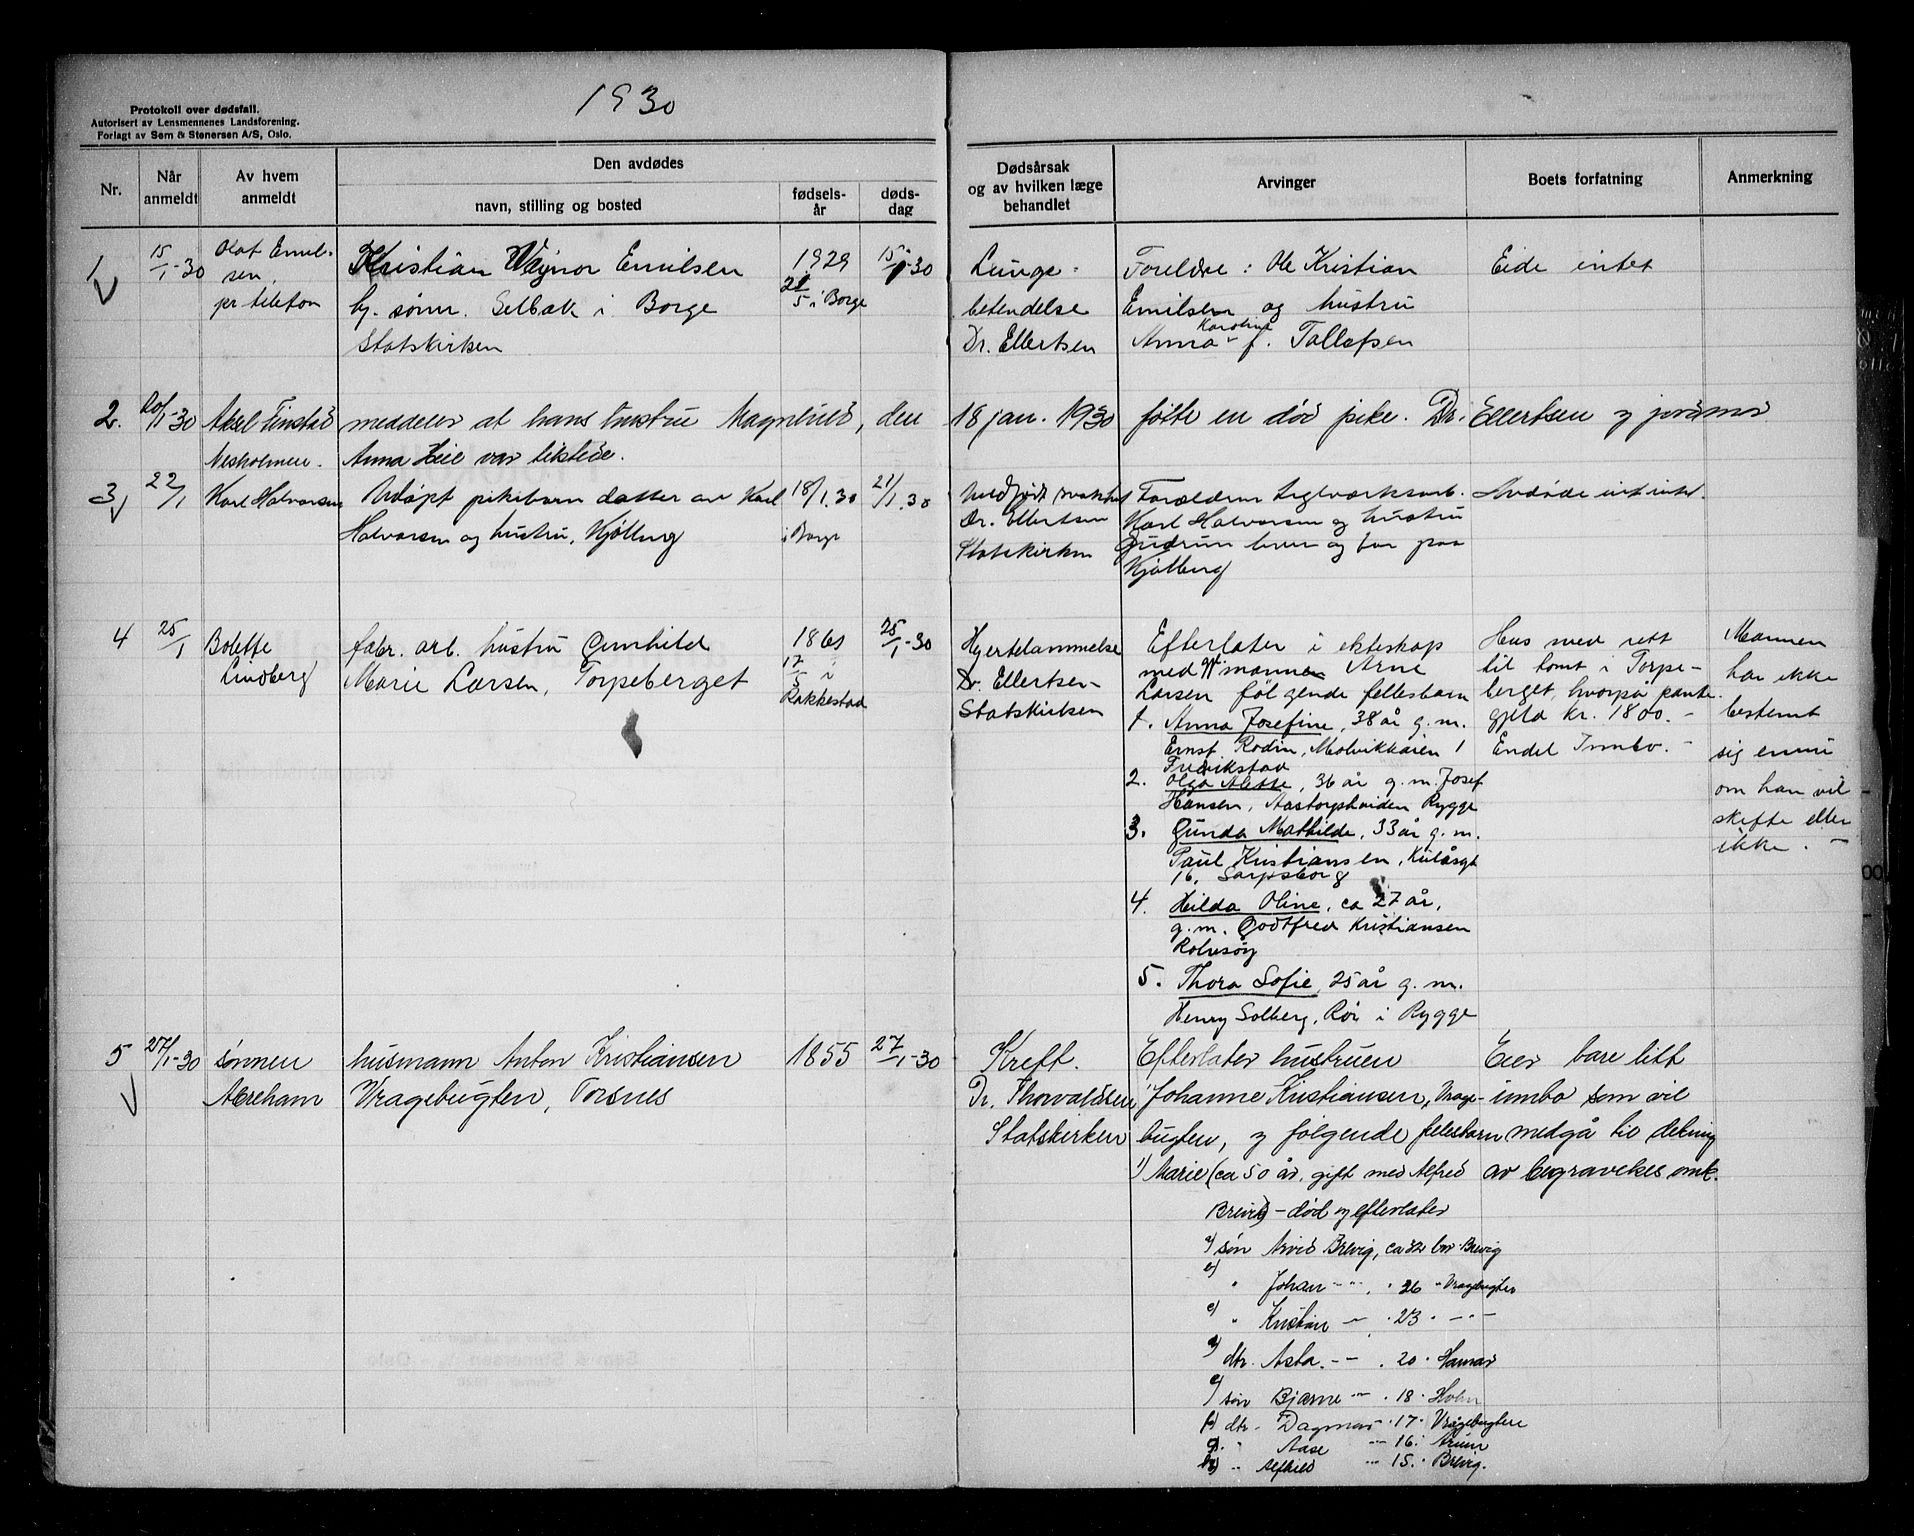 1930
Protokoll over dødsfall.
Autorisert av Lensmennenes Landsforening.
Forlagt av Sem & Stenersen A/S, Oslo.
Nr.
Når anmeldt
Av hvem anmeldt
Den avdødes
navn, stilling og bosted
fødsels-år
døds-dag
Dødsårsak og av hvilken læge behandlet
Arvinger
Boets forfatning
Anmerkning
1
15/1-30
Olaf Emil-
sen,
pr telefon
Kristian Vagnor Emilsen
ug. sønn. Selbak i Borge
Statskirken
1929
21/5 i Borge
15/1-30
Lunge-
betendelse
Dr. Ellertsen
Foreldre: Ole Kristian
Emilsen og hustru
Anna Karoline f. Tollefsen
Eide intet
2. 20/1-30 Aksel Finstad meddeler at hans hustru Magnhild, den 18 jan. 1930 føtte en død pike. Dr. Ellertsen og jordmor
Nesholmen. Anna Heie var tilstede.
3
22/1
Karl Halvorsen
Udøpt pikebarn datter av Karl
Halvorsen og hustru, Kjølberg
18/1.30
i Borge
21/1.30
Dr. Ellertsen
Statskirken
Forældrene Teglverksarb.
Karl Halvorsen og hustru
Gudrun lever og bor paa
Kjølberg
Avdøde eiet intet
4
25/1
Bolette
Lindberg
fabr. arb. hustru Gunhild
Marie Larsen, Torpeberget
1861
17/5 i
Rakkestad
25/1-30
Hjertelammelse
Dr. Ellertsen-
Statskirken
Efterlater i ekteskap
med gjt. mannen Arne
Larsen følgende fellesbarn
1. Anna Josefine, 38 år g.m.
Ernst Rodin, Molvikkaien 1
Fredrikstad
2. Olga Alette, 36 år g.m. Josef
Hansen, Aastorpheiden Rygge
3. Gunda Mathilde, 33 år g.m.
Paul Kristiansen, Kulåsgt
16, Sarpsborg
4. Hilda Oline, ca 27 år,
g.m. Godtfred Kristiansen
Rolvsøy
5. Thora Sofie, 25 år g.m.
Henry Solberg, Rør i Rygge
Hus med rett
til tomt i Torpe-
berget, hvorpå pante
gjeld kr. 1800.-
Endel Innbo.-
Mannen
har ikke
bestemt
sig ennu
om han vil
skifte eller
ikke.-
5
27/1-30
sønnen
Abraham
husmann Anton Kristiansen
Vragebugten, Torsnes
1855
27/1-30
Kreft.
Dr. Thorvaldsen
Statskirken
Efterlater hustruen
Johanne Kristiansen, Vrage-
bugten, og følgende fellesbarn
1) Marie (ca 50 år, gift med Alfred
Brevig) - død og efterlater
a) søn Arvid Brevig, ca 32 bor Brevig
b) " Johan -"- . 26 " Vragebugten
c) " Kristian -"- . 23 " -"-
d) dtr. Asta -"- . 20 " Hamar
e) søn Bjarne -"- . 18 "
f) dtr. Dagmar . 17 " Vragebugten
g) " Aase -"- 16 "
h) " Alfhild -"- 15 " Brevig.
Eier bare litt
innbo som vil
medgå til dekning
av begravelses omk.